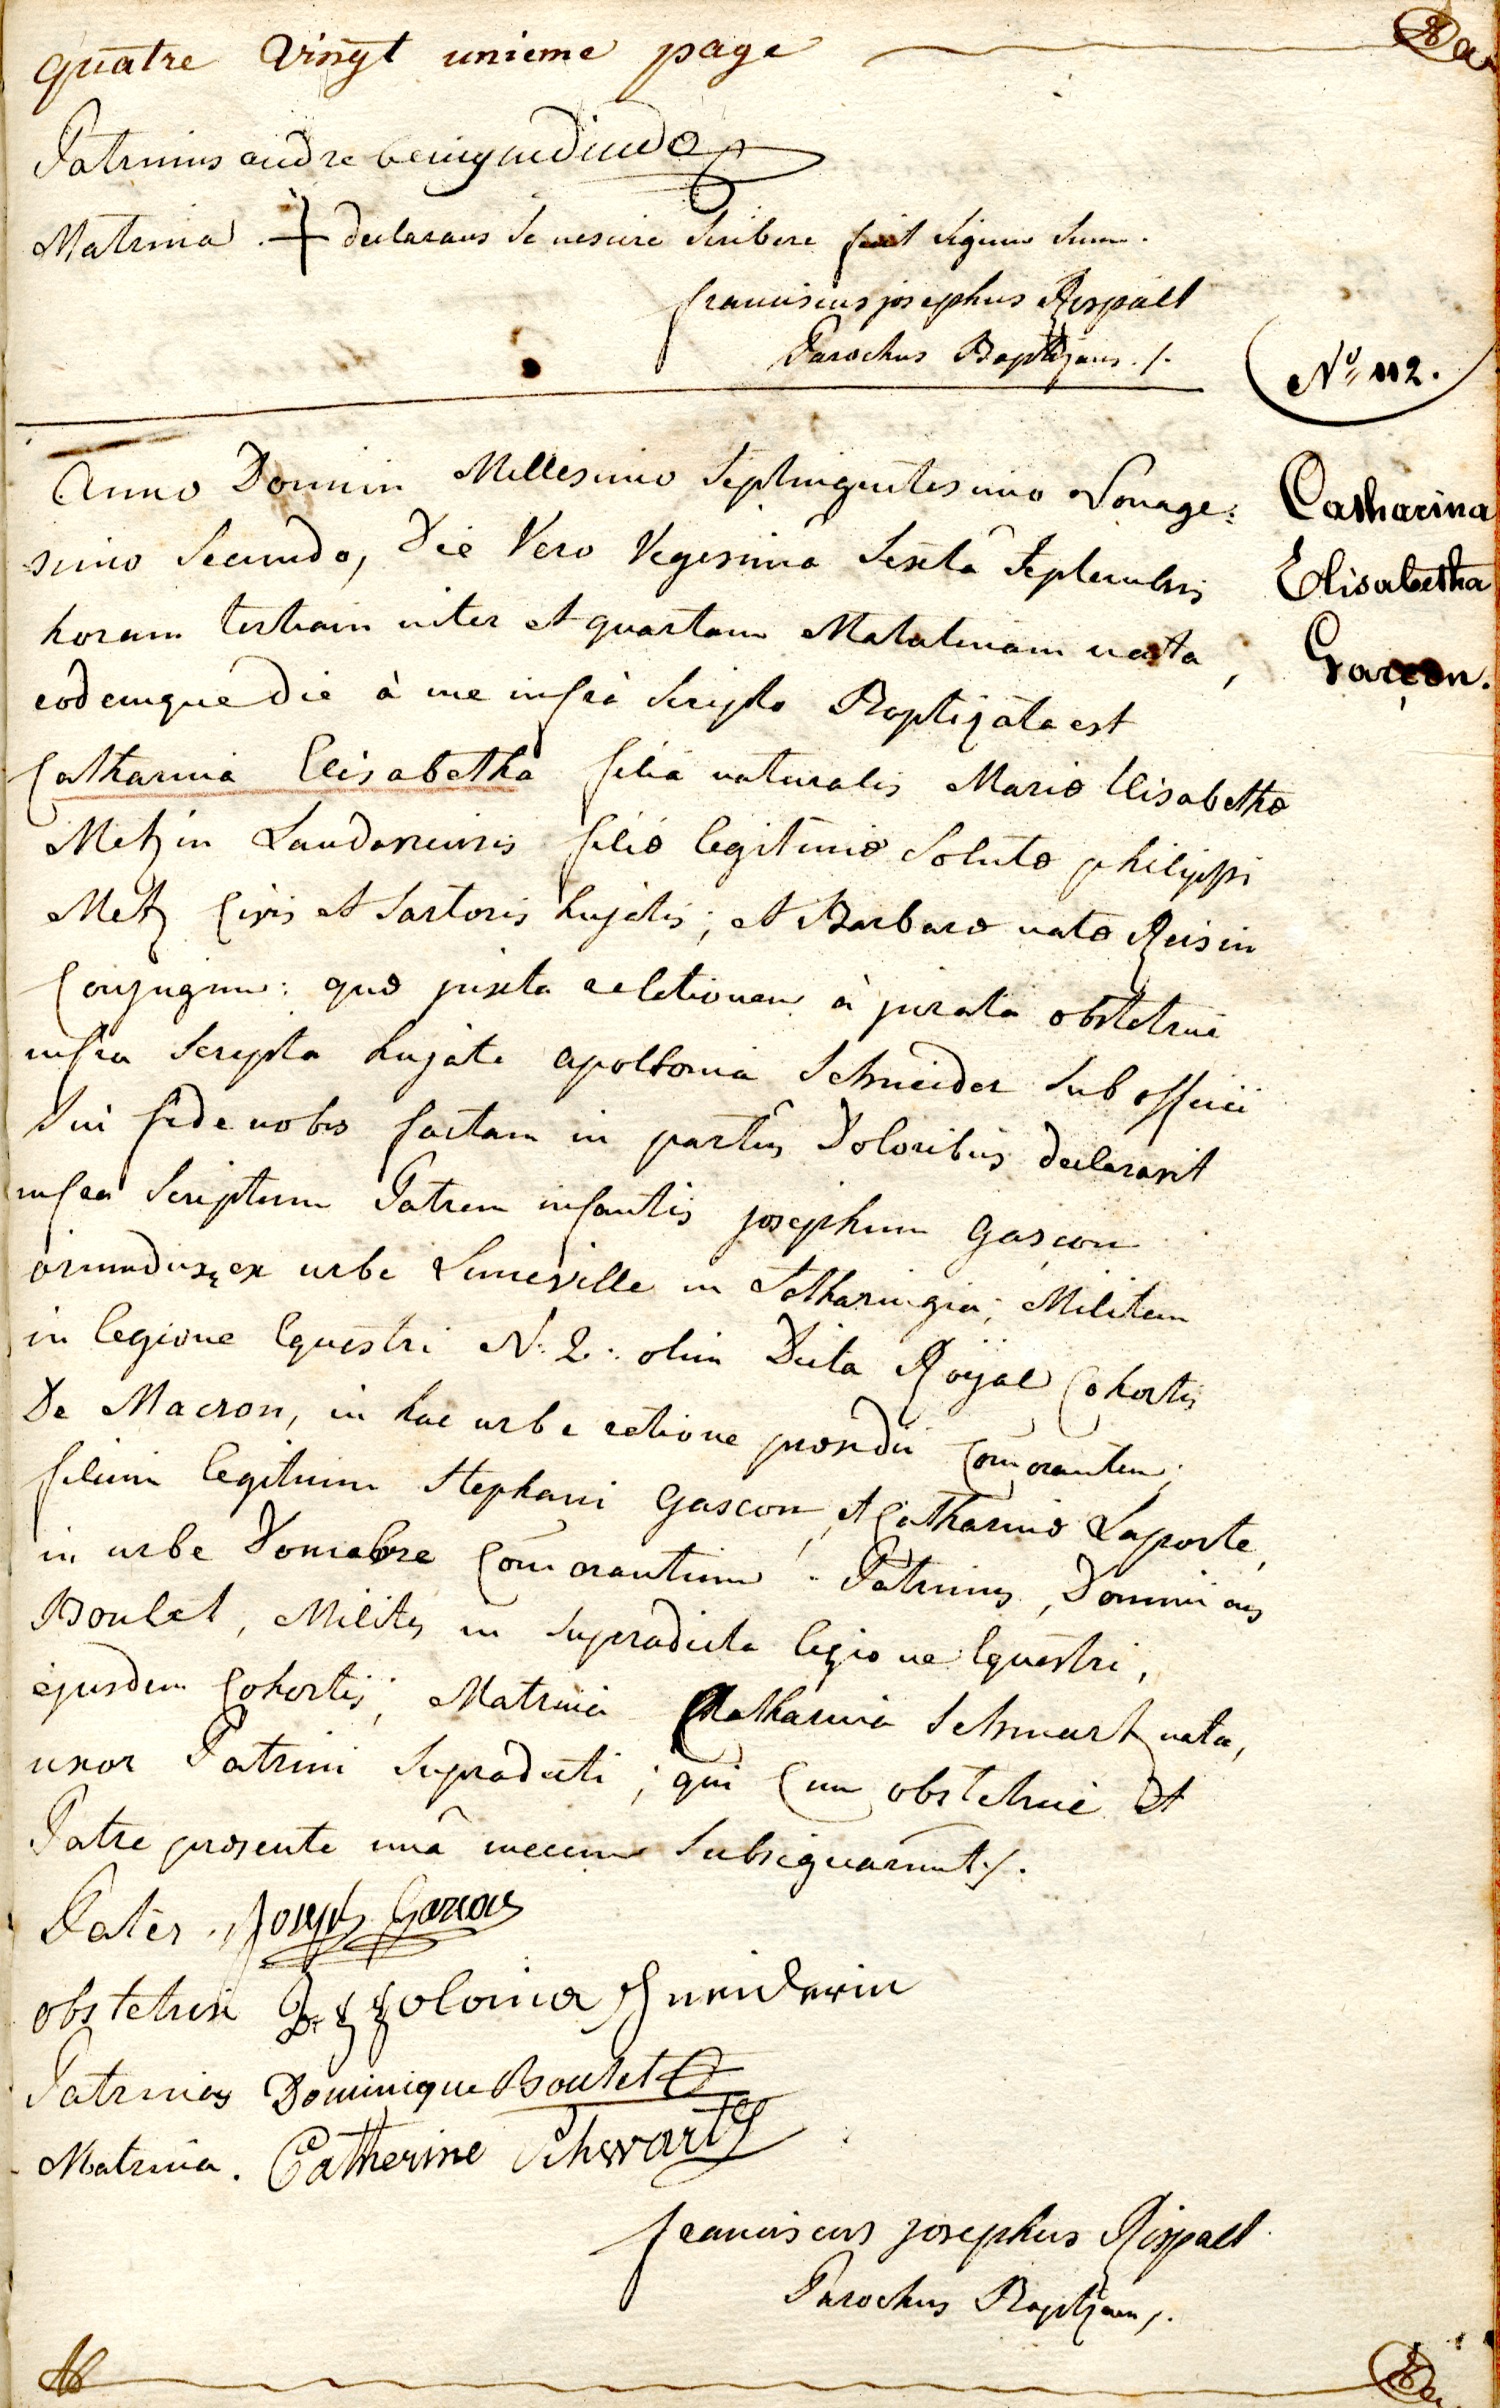 quatre vingt unieme page
Patrinus andre
Matrina + declarans se nescire scribere fecit signum suum.
franciscus josephus Rispalt
Parochus Baptizans ./.
N.º 112.
Anno Domini Millesimo Septingentesimo Nonage:
simo secundo, Die Vero Vigesimâ Sextâ Septembris
horam tertiam inter et quartam Matutinam nata,
eodemque die à me infrà scripto Baptizata est
Catharina Elisabetha filia naturalis Mariæ Elisabethæ
Metzin Landaviensis filiæ legitimæ solutæ philippi
Metz Civis et Sartoris hujatis; et Barbaræ natæ Reisin
Conjugum: quæ juxta relationem à jurata obstetrice
infra scripta hujate apollonia Schneider sub officii
sui fide nobis factam in partûs Doloribus declaravit
infra scriptum Patrem infantis josephum Gasçon
oriundus ex urbe Luneville in Lotharingia; Militem
in legione Equestri N. 2. olim Dicta Roijal Cohortis
De Macron, in hac urbe ratione præsidii Com̄orantem;
filium legitimum Stephani Gascon, et Catharinæ Laporte,
in urbe Domabre Com̄orantium. Patrinus, Dominicus
Boulet, Miles in supradicta legione Equestri,
ejusdem Cohortis; Matrina Catharina Schwartz nata,
uxor Patrini supradicti; qui Cum obstetrice et
Patre præsente unâ mecum subsignarunt ./.
Catharina
Elisabetha
Garçon.
Pater. Joseph Garcon
obstetrix Appolonia Schneiderin
Patrinus Dominique Boulet
Matrina. Catherine Schwartz
franciscus josephus Rispalt
Parochus Baptizans ./.